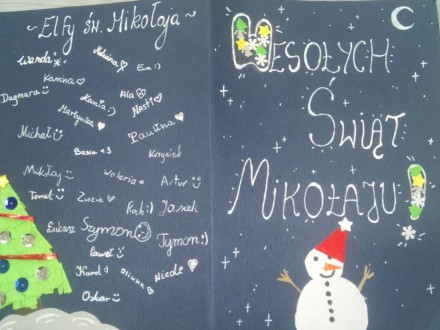 ~ Elfy św. Mikołaja ~
Wanda
Ewa :)
Karcina
Dagmara
Kamila :)
Ala
Nastia
Martynka
Michał
Paulina
Basia <3
Krzysiek
Mikołaj
Waleria
Artur
Tomek
Zuzia
Roch :)
Jasiek
Łukasz
Szymon
Tymon :)
Paweł
Karol :)
Oliwka
Nicole
Oskar
WESOŁYCH
ŚWIĄT
MIKOŁAJU!